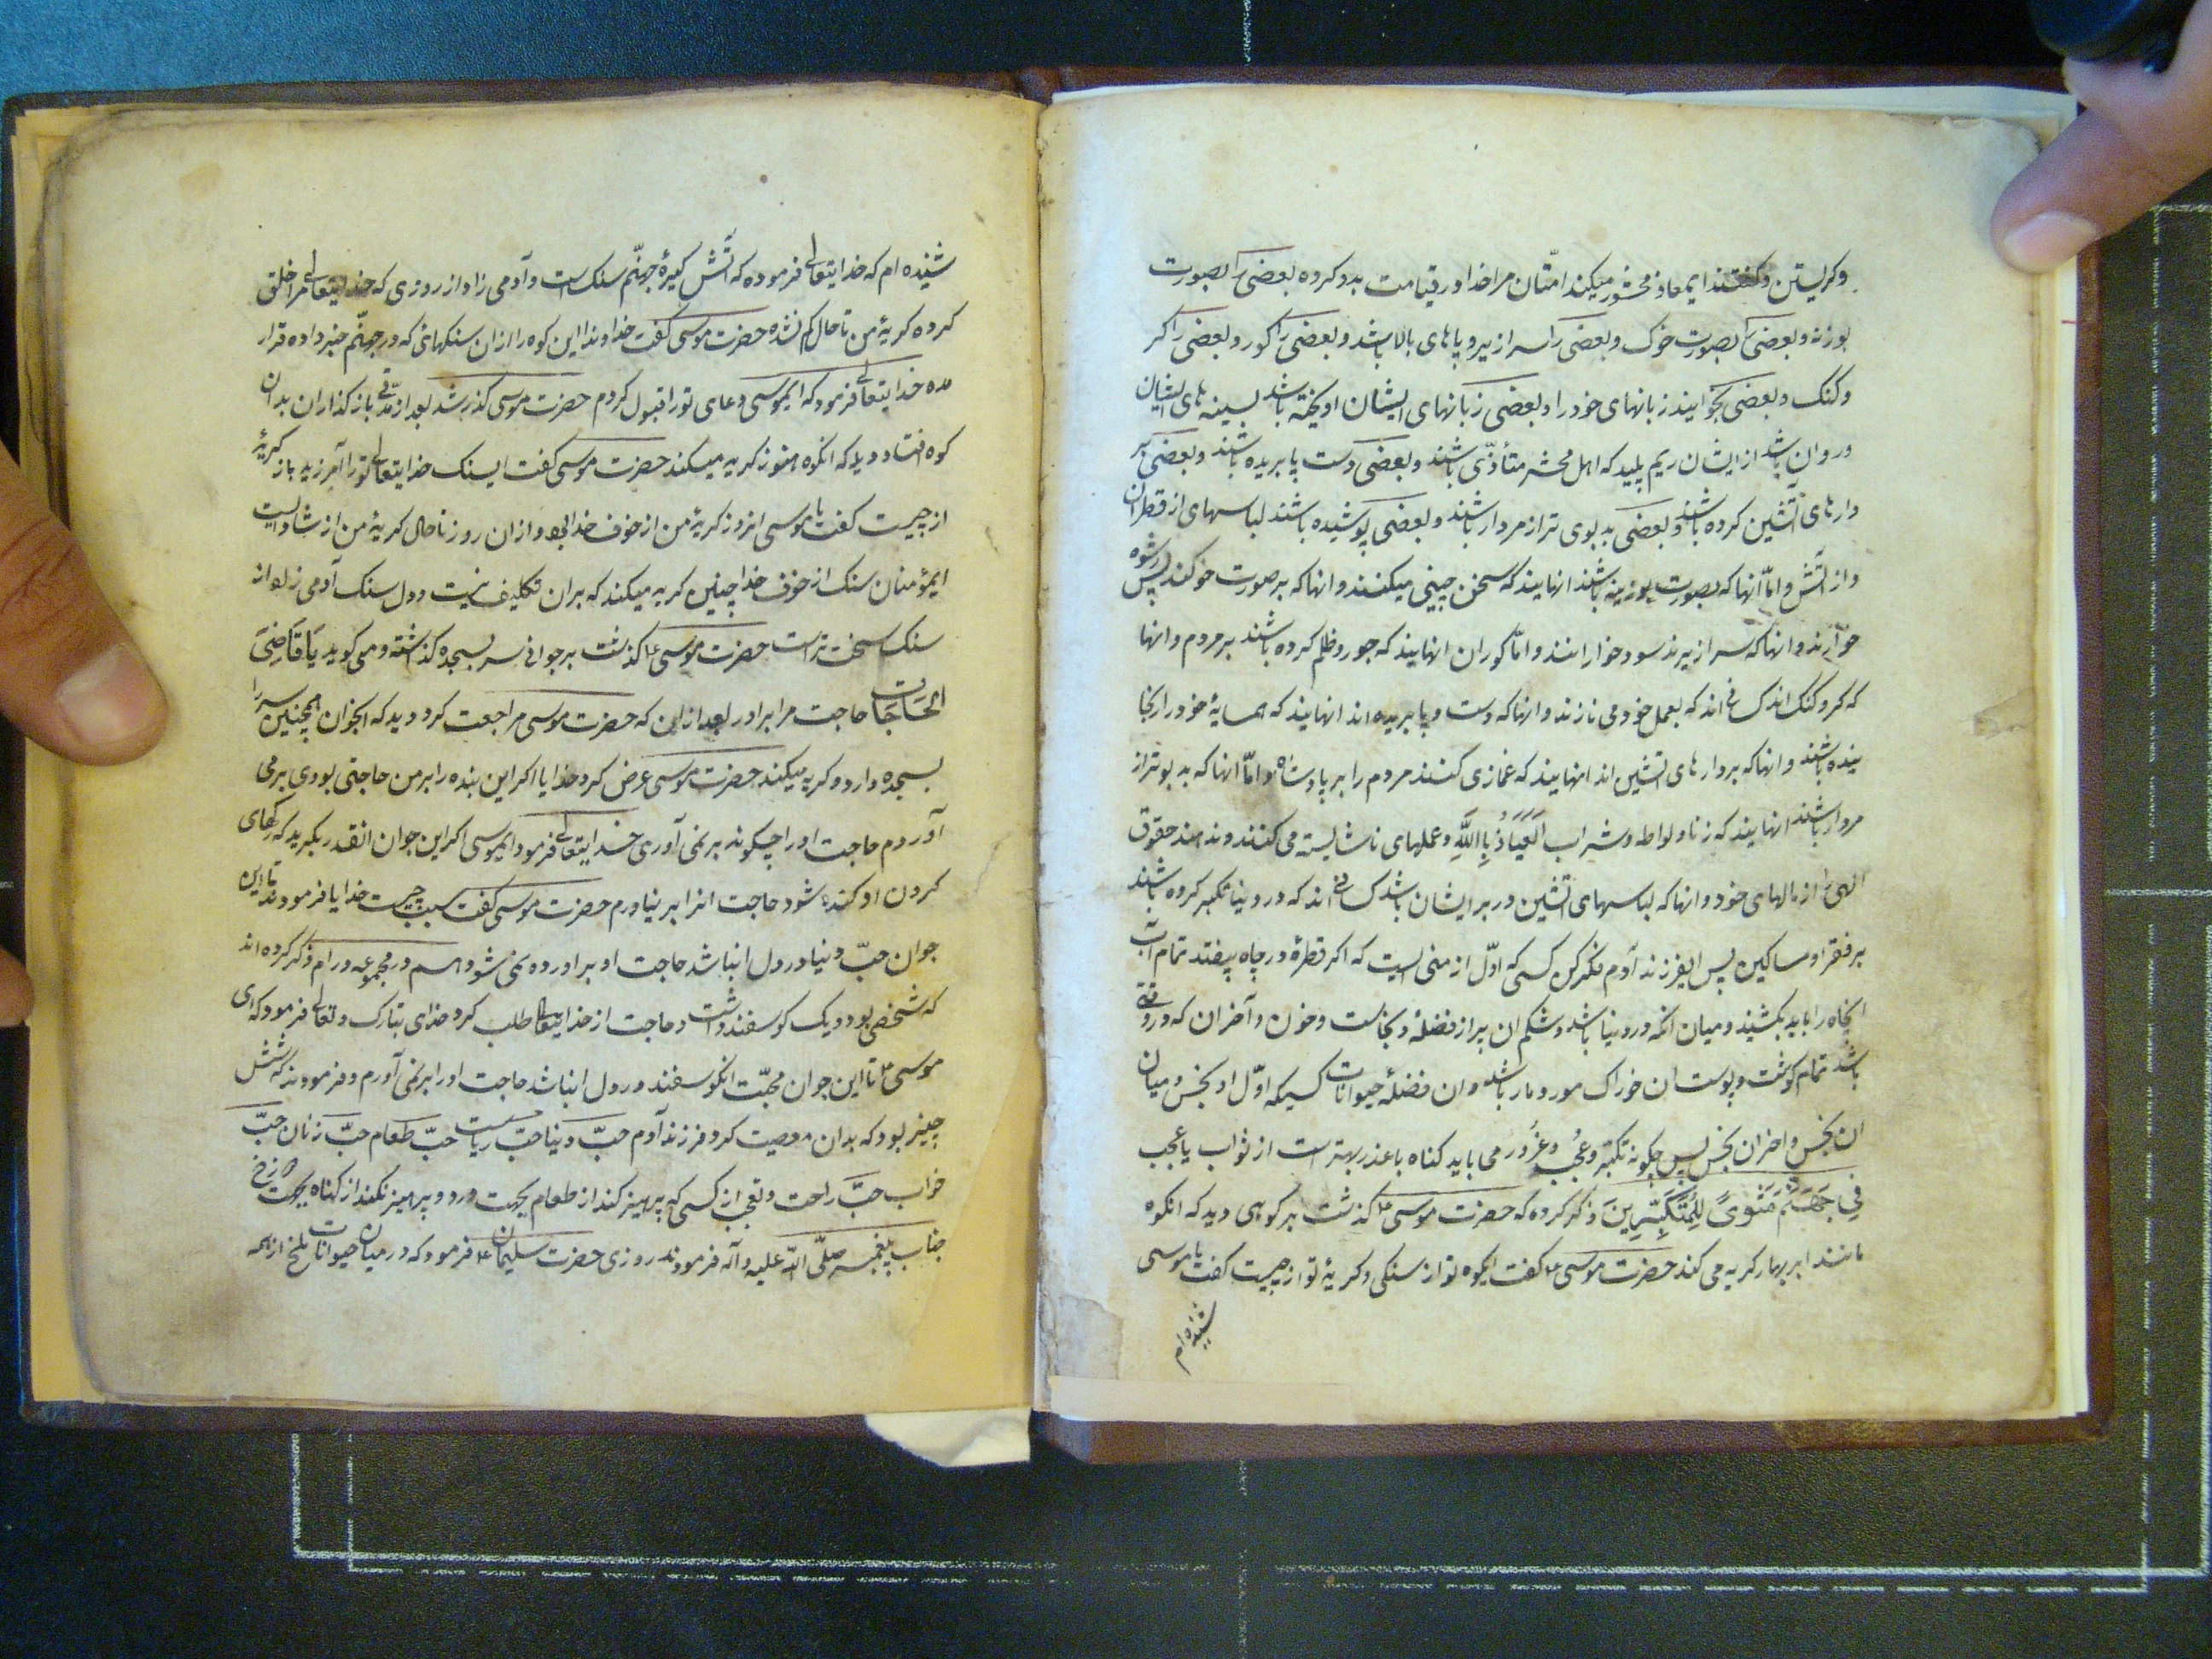 وکریستن و کفتند ایمعاذ محشور میکند امّتان مرا خدا در قیامت بدو کروه بعضی را بصورت
بوزنه و بعضی را بصورت خوک و بعضی را سرازیر و پاهای بالا باشد و بعضی را کور و بعضی را کر
و کنک و بعضی زبانهای خود را و بعضی زبانهای ایشان اویخته باشد بسینه های ایشان
و روان باشد از ایشان ریم پلید که اهل محشر متأذّی باشند و بعضی دست پا بریده باشند و بعضی بر
دارهای آتشین کرده باشند و بعضی بد بوی تر از مردار باشند و بعضی پوشیده باشند لباسهای از قطران
و از آتش و امّا آنها که بصورت بوزینه باشند انهایند که سخن چینی میکنند و انها که بر صورت خوکند پس رشوه
خوارند و انها که سرازیرند سود خوارانند و امّا کوران انهایند که جور و ظلم کرده باشند بر مردم و انها
که کر و کنک اند کسانی اند که بعمل خود می نازند و انها که دست و پا بریده اند انهایند که همسایۀ خود را رنجا
نیده باشند و انها که بر دارهای اتشین اند انهایند که غمازی کنند مردم را بر پادشاه و امّا انها که بد بوتر از
مردار باشند انهایند که زنا و لواطه و شراب اَلعَیاذُ بِاللّهِ و عملهای ناشایسته می کنند و ندهند حقوق
الهی را از مالهای خود و انها که لباسهای اتشین در بر ایشان باشد کسانی اند که در دنیا تکبر کرده باشند
بر فقرا و مساکین پس ایفرزند آدم تکبر کسی که اوّل از منی ایست که اکر قطرۀ در چاه بیفتد تمام آب
انچاه را باید بکشیند و میان انکه در دنیا باشد و شکم ان پر از فضله و نجاست و خون و آخران که در وقتی
باشد تمام کوشت و پوست ان خوراک مور و مار باشد و ان فضلۀ حیوانات کسیکه اوّل او نجس و میان
ان نجس و اخران نجس پس چکونه تکبّر و عُجب و غرُور می باید کناه با عذر بهتر است از ثواب با عجب
فِی جَهَنَّمَ مَثْویً لِلْمُتَکَبِّرینَ ذکر کرده که حضرت موسی ع کذشت بر کوهی دید که انکوه
مانند ابر بهار کریه می کند حضرت موسی ع کفت ایکوه تو از سنکی و کریۀ تو از چیست کفت یا موسی
شنیده ام
شنیده ام که خدایتعالی فرموده که آتش کیرۀ جهنّم سنک است و آدمی زاد از روزی که خدایتعالی مرا خلق
کرده کریۀ من تا حال کم نشده حضرت موسی کفت خداوندا این کوه را از ان سنکهائی که در جهنّم خبر داده قرار
مده خدایتعالی فرمود که ایموسی دعای تو را قبول کردم حضرت موسی کذر شد بعد از مدّتی باز کذاران بدان
کوه افتاد دید که انکوه هنوز کریه میکند حضرت موسی کفت اینک خدایتعالی تو را آمرزید باز کریۀ
از چیست کفت یا موسی انروز کریۀ من از خوف خدا بود و از ان روز تا حال کریۀ من از شادیست
ایمؤمنان سنک از خوف خدا چنین کریه میکند که بران تکلیف نیست و دل سنک آدمی زاد از
سنک سخت تر است حضرت موسی ع کذشت بر جوانی سر بسجده کذاشته و می کوید یَا قَاضِیَ
الحَاجَات حاجت مرا برآور بعد از این که حضرت موسی مراجعت کرد دید که انجوان همچنین سر را
بسجده دارد و کریه میکند حضرت موسی عرض کرد خدایا اکر این بنده را بر من حاجتی بودی بر می
آوردم حاجت او را چکونه بر نمی آوری خدایتعالی فرمود ایموسی اکر این جوان انقدر بکرید که رکهای
کردن او کنده شود حاجت انرا بر نیاورم حضرت موسی کفت سبب چیست خدایا فرمودند تا این
جوان حبّ دنیا در دل انباشد حاجت او براورده نمی شود هم در مجموعه ورام ذکر کرده اند
که شخصی بود و یک کوسفند داشت و حاجت از خدایتعالی طلب کرد خدای تبارک و تعالی فرمود که ای
موسی ع تا این جوان محبّت انکوسفند در دل انباشد حاجت او را بر نمی آورم و فرمودند که شش
چیز بود که بدان معصیت کرد فرزند آدم حبّ دنیا حبّ ریاست حبّ طعام حبّ زنان حبّ
خواب حبّ راحت و تعجب از کسی که پرهیز کند از طعام بجهت درد و پرهیز نکند از کناه بجهت دوزخ
جناب پیغمبر صلّی الله علیه و آله فرمودند روزی حضرت سلیمان ع فرمود که در میان حیوانات ملخ از همه